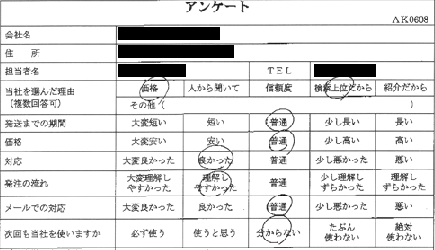 アンケート
AK0608
会社名
住 所
担当者名 TEL
当社を選んだ理由 価格 人から聞いて 信頼度 検索上位だから 紹介だから
(複数回答可) その他( )
発送までの期間 大変短い 短い 普通 少し長い 長い
価格 大変安い 安い 普通 少し高い 高い
対応 大変良かった 良かった 普通 少し悪かった 悪い
発注の流れ 大変理解しやすかった 理解しやすかった 普通 少し理解しづらかった 理解しづらかった
メールでの対応 大変良かった 良かった 普通 少し悪かった 悪い
次回も当社を使いますか 必ず使う 使うと思う 分からない たぶん使わない 絶対使わない